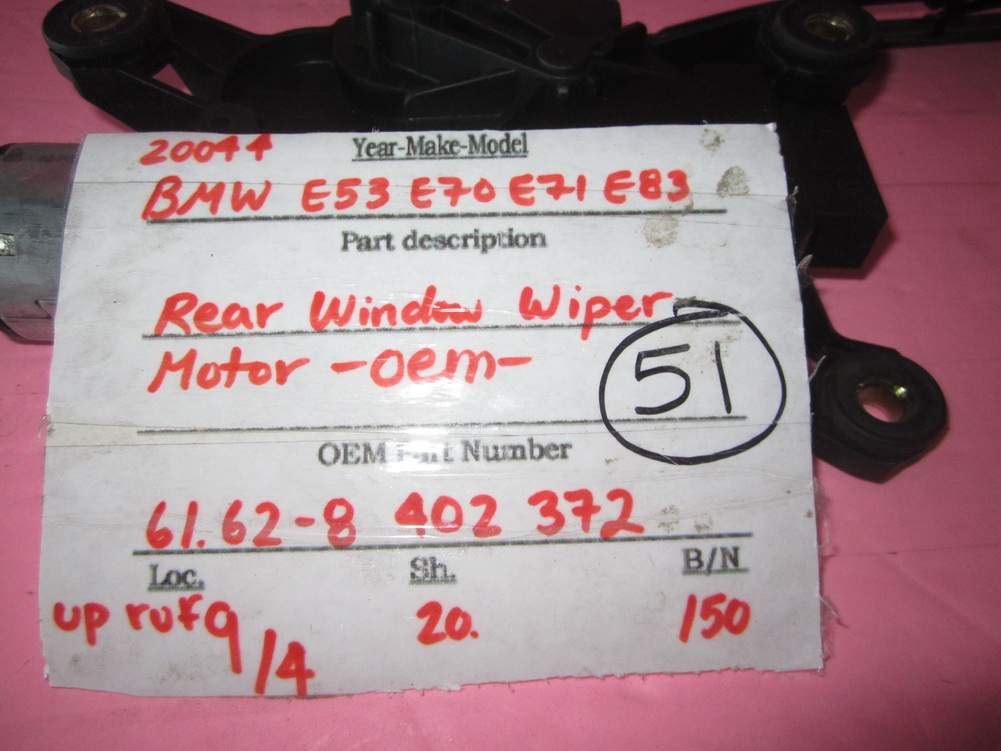 20044 Year-Make-Model
BMW E53 E70 E71 E83
Part description
Rear Window Wiper
Motor -oem-
51
OEM Part Number
61.62-8 402 372
Loc. Sh. B/N
up 20. 150
9/4